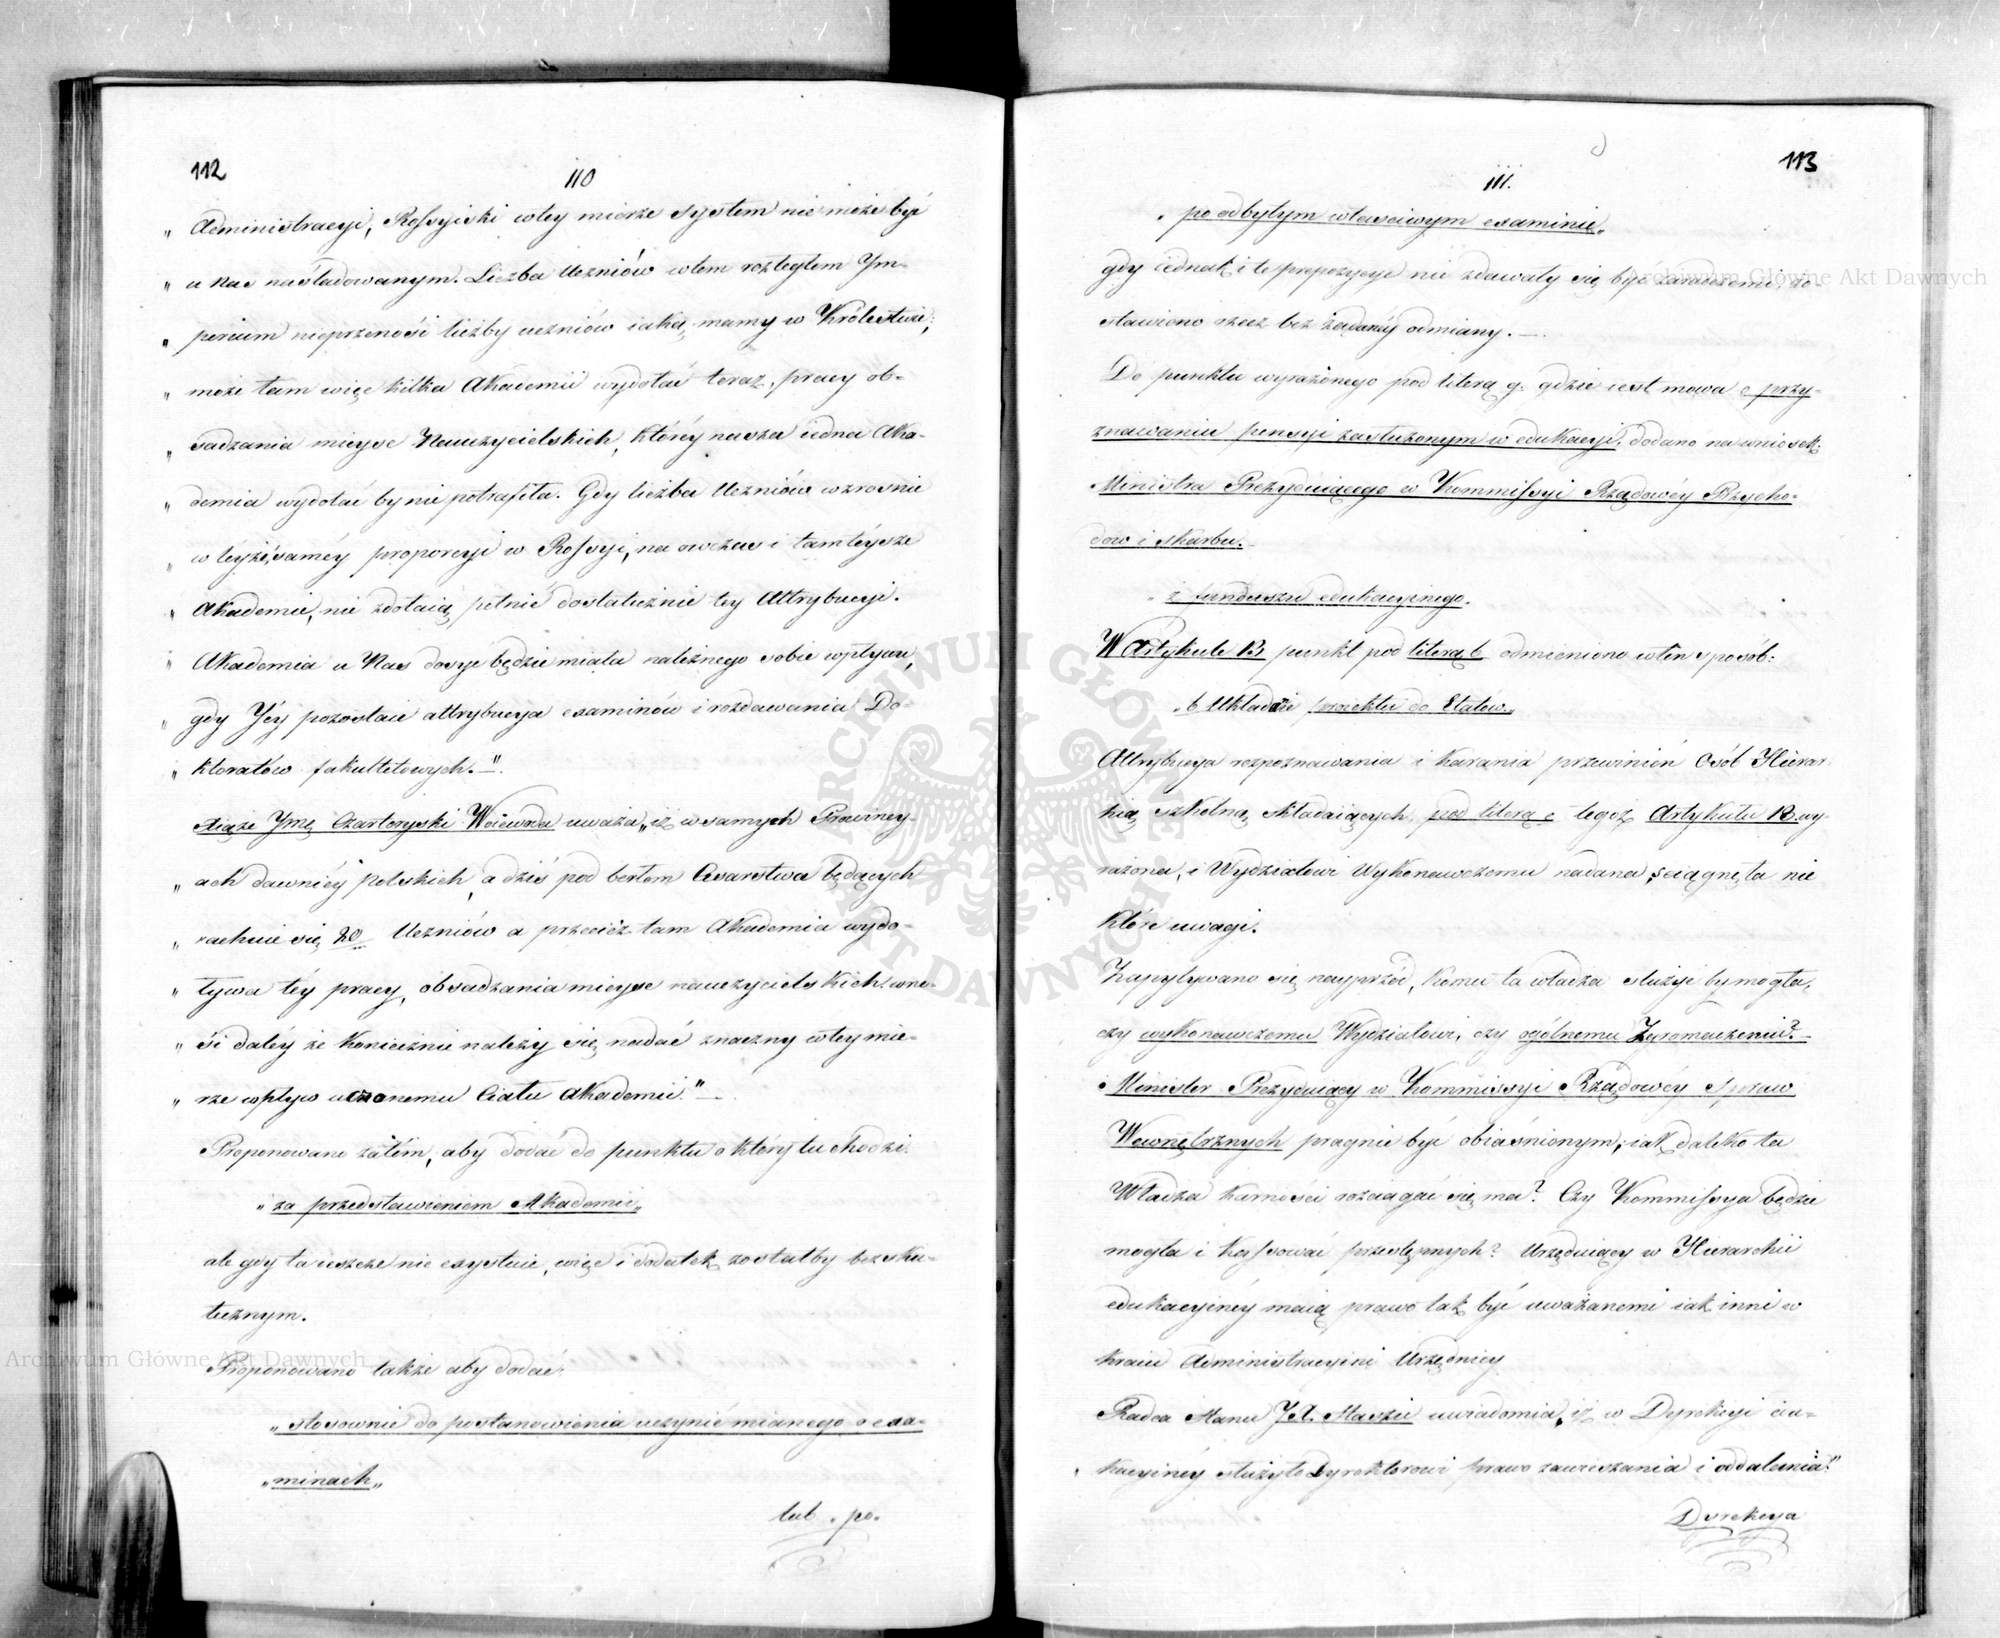 112
110
„ Administracyi, Rossyiski wtey mierze system nie może być
„ u nas naśladowanym. Liczba Uczniów wtem rozległem Ym-
„ perium nieprzenosi liczby uczniów iaką mamy w Królestwie;
„ może tam więc kilka Akademii wydołać teraz, pracy ob-
„ sadzania mieysc Nauczycielskich, któréy nasza iedna Aka-
„ demia wydołać by nie potrafiła. Gdy liczba Uczniów wzrośnie
„ w téyżesaméy proporcyi w Rossyi, na owczas i tamtéysze
„ Akademie, nie zdołaią pełnić dostatecznie tey Attrybucyi.
„ Akademia u Nas dosyć będzie miała należnego sobie wpływu,
„ gdy Jéy pozostaie attrybucya examinów i rozdawania Do-
„ ktoratów fakultetowych."
Xiąże Jmć Czartoryski Woiewoda uważa „iż wsamych Prowincy-
„ ach dawniéy polskich, a dziś pod berłem Cesarstwa będących
„ rachuie się 20 Uczniów a przecież tam Akademia wydo-
„ ływa téy pracy, obsadzania mieysc nauczycielskich: wno-
„ si daléy że koniecznie należy się nadać znaczny wtey mie-
„ rze wpływ uczonemu Ciału Akademii."
Proponowano zatém, aby dodać do punktu o który tu chodzi.
„za przedstawieniem Akademii„
ale gdy ta ieszcze nie exystuie, więc i dodatek zostałby bezsku-
tecznym.
Proponowano także aby dodać:
„stosownie do postanowienia uczynić mianego o exa-
„minach„
lub „po„
113
111.
„po odbytym własciwym examinie„
gdy iednak i te propozycye nie zdawały się być zaradczemi, zo-
stawiono rzecz bez żądanéy odmiany.
Do punktu wyrażonego pod literą g. gdzie iest mowa o przy-
znawaniu pensyi zasłużonym w edukacyi, dodano na wniosek
Ministra Prezyduiącego w Kommissyi Rządowéy Przycho-
dów i Skarbu.
„z funduszu edukacyinego.
W Artykule 13 punkt pod literą b odmieniono wten sposób:
„b Układzie proiektu do Etatów„
Attrybucya rozpoznawania i karania przewinień Osób Hierar-
hią szkolną składaiących, pod literą c tegoż Artykułu 13. wy-
rażona, i Wydziałowi Wykonawczemu nadana, sciągnęła nie
które uwagi.
Zapytywano się nayprzód, komu ta władza służyć by mogła,
czy wykonawczemu Wydziałowi, czy ogólnemu Zgromadzeniu?
Minister Prezyduiący w Kommissyi Rządowéy Spraw
Wewnętrznych pragnie być obiaśnionym, iak daleko ta
Władza karności rozciągać się ma? Czy Kommissya będzie
mogła i kassować przestępnych? Urzęduiący w Hierarchii
edukacyinéy maią prawo tak być uważanemi iak inni w
kraiu Administracyini Urzędnicy
Radca Stanu JX. Staszic uwiadomia, „iż w Dyrekcyi edu-
„ kacyinéy służyło Dyrektorowi prawo zawieszania i oddalania."
Dyrekcya
Archiwum Główne Akt Dawnych
Archiwum Główne Akt Dawnych
ARCHIWUM GŁÓWNE AKT DAWNYCH